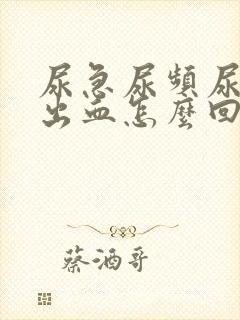 尿急尿頻尿
出血怎麼回
蔡酒哥